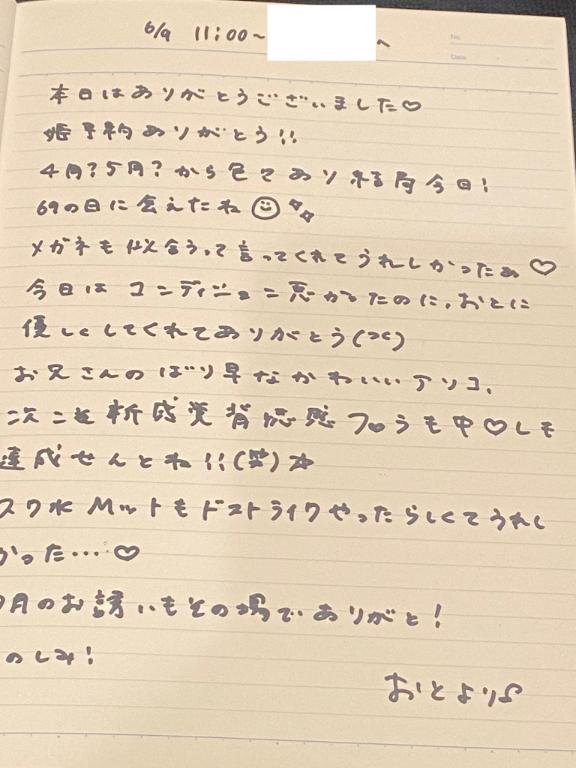 No.
Date
6/9 11:00〜 へ
本日はありがとうございました♡
姫予約ありがとう!!
4月?5月?から色てあり来る何今日!
69の日に会えたね☺
メガネも似合うって言ってくれてうれしかったぁ♡
今日はコンディション悪かったのに、おとに
優しくしてくれてありがとう
お兄さんのばり早なかわいいアソコ、
次こそ新感覚背徳感フロうも中♡しも
達成せんとね!!(笑)☆
スワ水Mットもドストライクやったらしくてうれし
かった…♡
月のお誘いもその場でありがと!
のしみ!
おとより♪